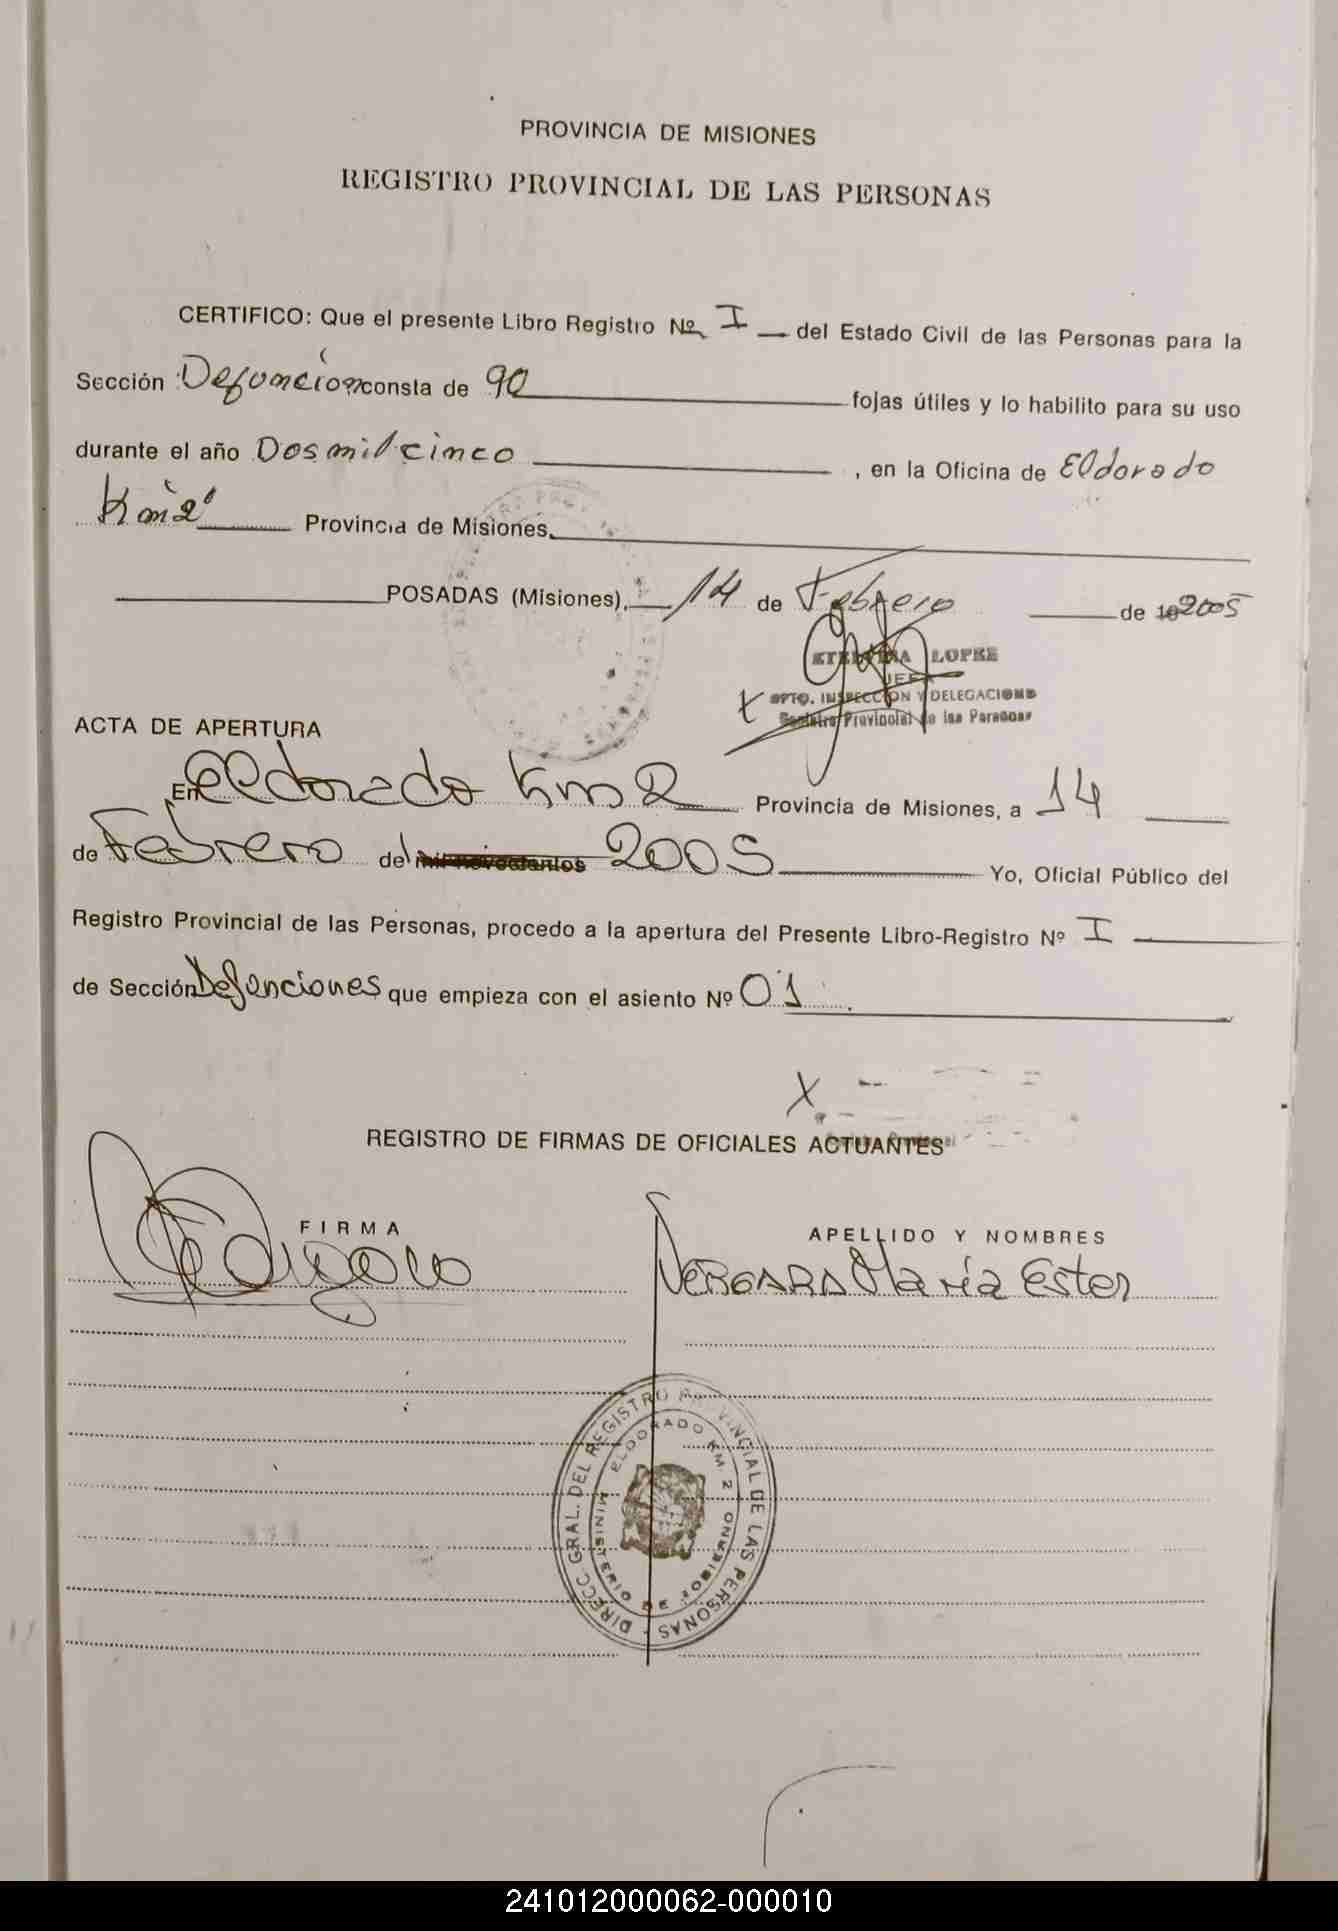 PROVINCIA DE MISIONES
REGISTRO PROVINCIAL DE LAS PERSONAS
CERTIFICO: Que el presente Libro Registro Nº I del Estado Civil de las Personas para la
Sección Defunción consta de 90 fojas útiles y lo habilito para su uso
durante el año Dos mil cinco , en la Oficina de Eldorado
Km 2 Provincia de Misiones.
POSADAS (Misiones), 14 de Febrero de 2005
LOPEZ
JEFA
DPTO. INSPECCION Y DELEGACIONES
Registro Provincial de las Personas
ACTA DE APERTURA
En Eldorado Km 2 Provincia de Misiones, a 14
de Febrero del mil novecientos 2005 Yo, Oficial Público del
Registro Provincial de las Personas, procedo a la apertura del Presente Libro-Registro Nº I
de Sección Defunciones que empieza con el asiento Nº 01
X
REGISTRO DE FIRMAS DE OFICIALES ACTUANTES
FIRMA APELLIDO Y NOMBRES
VERGARA María Ester
DIRECC. GRAL. DEL REGISTRO PROVINCIAL DE LAS PERSONAS
ELDORADO KM. 2
MINISTERIO DE GOBIERNO
241012000062-000010